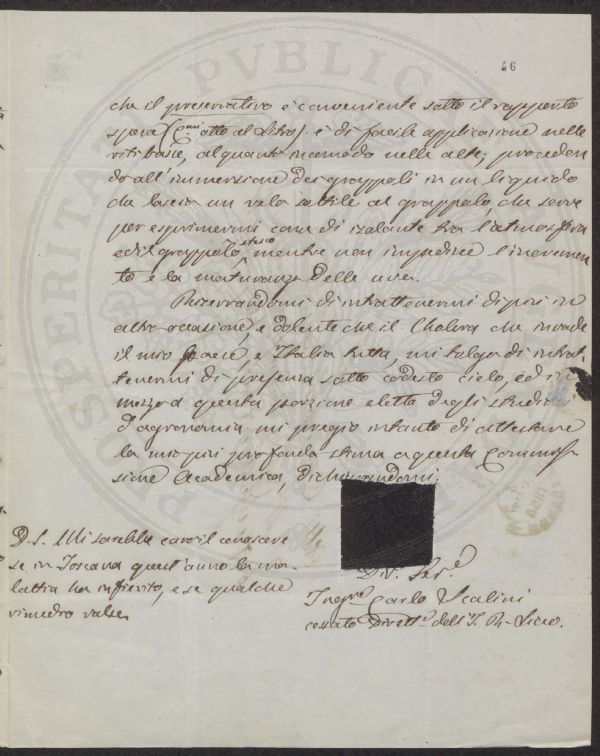 PROSPERITATI PVBLICAE
46
che il preservativo è conveniente sotto il rapporto
spesa (C.mi otto al Litro) è di facile applicazione nelle
viti basse, alquanto incomodo nelle alte; proceden
do all'immersione dei grappoli in un liquido
che lascia un velo sottile al grappolo, che serve
per esprimermi come di izolante tra l'atmosfera
ed il grappolo stesso, mentre non impedisce l'incremen
to e la maturanza delle uve.
Riservandomi di intrattenermi di più in
altra occasione, e dolente che il Cholera che invade
il mio Paese, e Italia tutta, mi tolga di intrat
tenermi di presenza sotto codesto cielo, ed in
mezzo a questa porzione eletta degli studii
d'agronomia mi pregio intanto di attestare
la mia più profonda stima a questa Commis
sione Accademica, dichiarandomi.
P.S. Mi sarebbe caro il conoscere
se in Toscana quest'anno la ma
lattia ha infierito, e se qualche
rimedio valse
Div. Ser.e
Ingeg.re Carlo Scalini
cessato Dirett.e dell'I. R. Liceo.